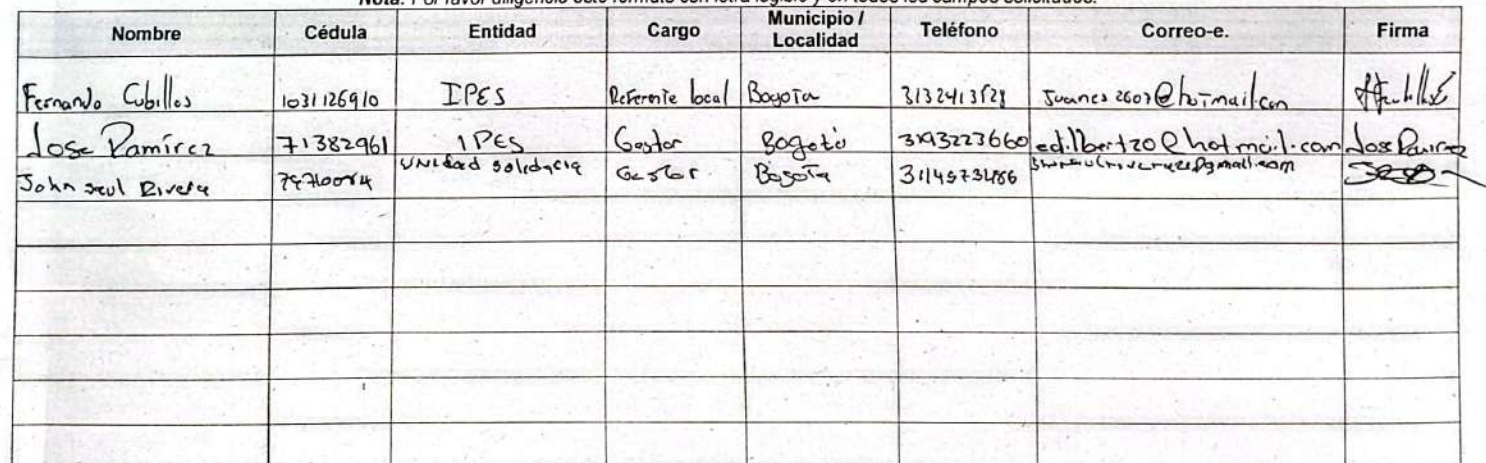 Nota: Por favor diligencie este formato con letra legible y en todos los campos solicitados.
Nombre Cédula Entidad Cargo Municipio / Localidad Teléfono Correo-e. Firma
Fernando Cubillos 1031126910 IPES Referente local Bogota Juanes2607@hotmail.com
Jose Ramírez 71382961 IPES Gestor Bogotá 3193223660 edilbertzo@hotmail.com Jose Ramirez
John saul Rivera Unidad solidaria Gestor Bogota